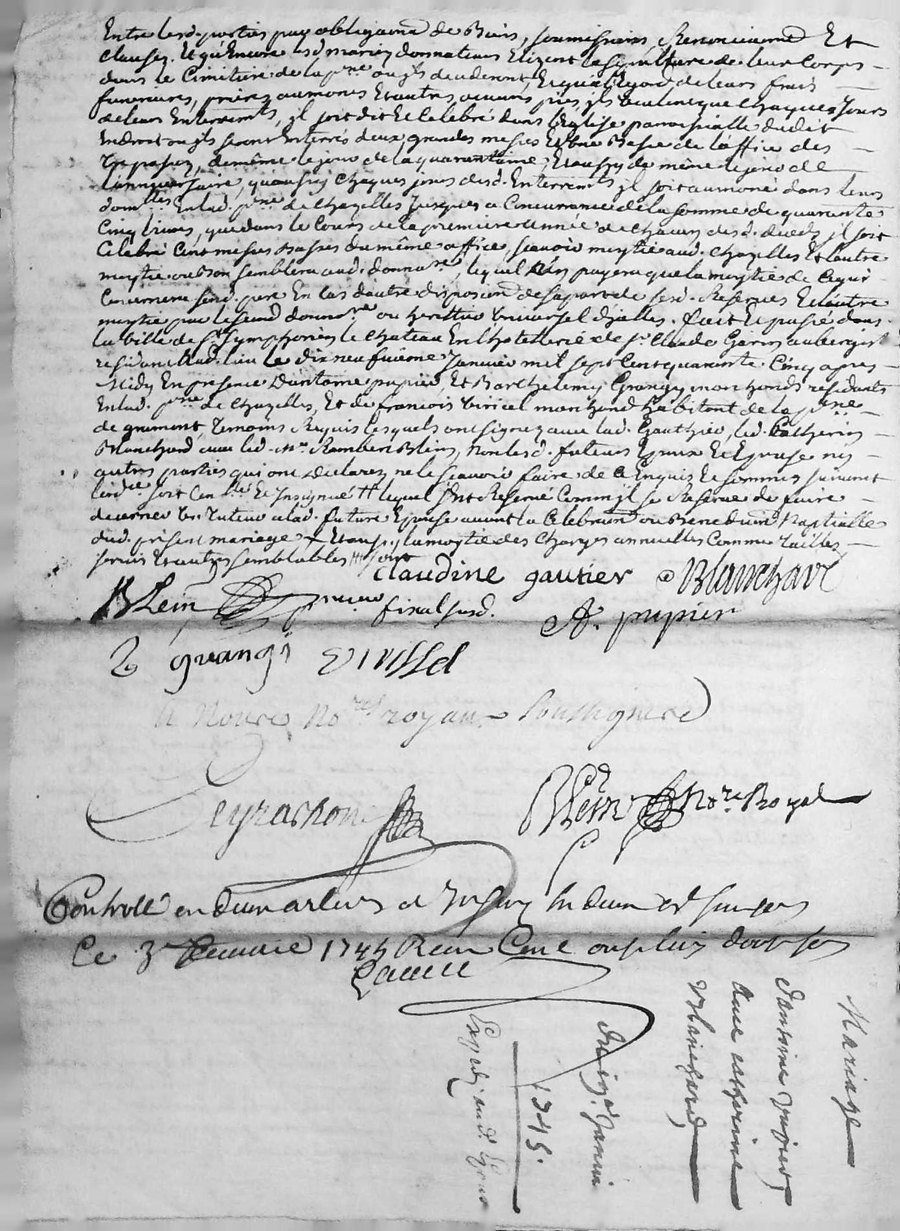 Entre lesd. parties par obligaõn de Biens, soumissions, Renonciaõns Et
clauses. Et qu'Encore lesd. mariez donnateurs Elizent la sepulture de leur Corps
dans le Cimitiere de la p.sse ou ils decederont, Et qu'a l'Egard de leurs frais
funeraires, prieres aumones Et autres œuvres pies, ils veulent que chaques Jours
de leurs Enterrements, il soit dit Et Celebré dans l'Eglise parroissialle dudit
Endroit ou ils seront Enterrés deux grandes messes Et une Basse de l'office des
Trepassez, de même le jour de la quarantaine, Et aussy de même le jour de
l'anniversaire, qu'aussy chaques jours desd. Enterrements il soit aumoné dans leurs
domilles En lad. p.sse de Chazelles Jusques a Concurrance de la somme de quarante
Cinq livres, que dans le Cours de la premiere année de chacun desd. deceds, il soit
Celebré Cent messes Basses du même office, scavoir moytie aud. Chazelles Et l'autre
moytie ou Bon semblera aud. donna.re, lequel n'en payera que la moytie de Ce qui
Concernera sesd. pere En cas d'autre disposiõn de sa part de sesd. Reserves Et l'autre
moytie par lesd. donna.re ou heritier universel d'jcelles. fait Et passé dans
la ville de S.t Symphorien le Chateau En l'hotellerie de S.r Claude Garin aubergiste
residant aud. lieu le dix neufvieme Janvier mil sept Cent quarante Cinq apres
Midy En presence d'antoine pupier, Et Barthelemy Grangy marchands residants
En lad. p.sse de Chazelles, Et de francois viricel marchand habitant de la p.sse
de gramont, temoins Requis lesquels ont signez avec lad. Gauthier, led. Catherin
Blanchard avec led. M.re Rambert Blein, non lesd. futurs Epoux Et Epouse ny
autres parties qui ont declarez ne le scavoir faire de ce Enquis Et sommés suivant
l'ord.ce soit Con.llé Et Insignué # lequel s'est Reservé Comme il se Reserve de faire
decerner un tuteur a lad. future Epouse avant la Celebraõn ou Benediction Nuptialle
dud. present mariage + Et aussy la moytie des Charges annuelles Comme tailles
servis Et autres semblables
claudine gautier Blanchard
Blein
final susd.
A. pupier
B grangi viricel
no.re royaux soussignés
Peyrachon
Blein no.re Royal
Controllé
Ce 1745 Recu
Mariage
D'antoine
avec catherine
Blanchard
Du 19.e Janvier
1745.
Expedié